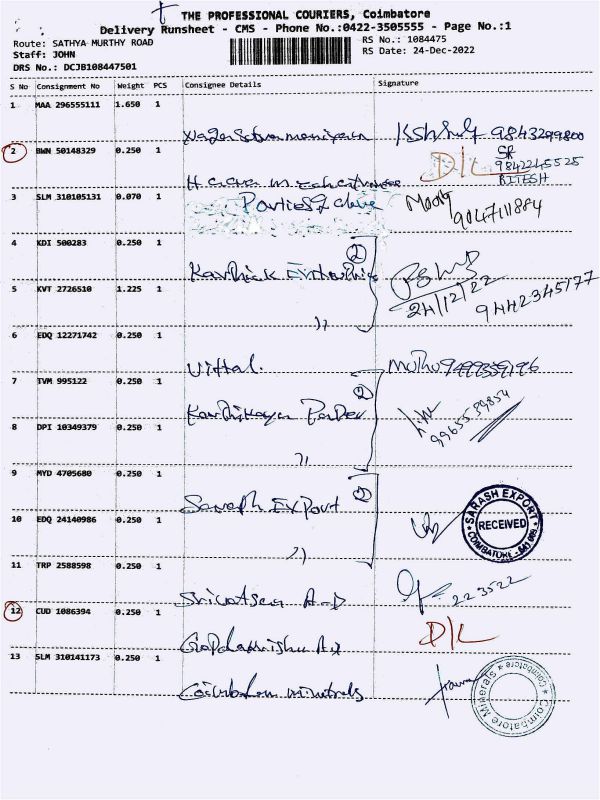 THE PROFESSIONAL COURIERS, Coimbatore
Delivery Runsheet - CMS - Phone No.:0422-3505555 - Page No.:1
Route: SATHYA MURTHY ROAD
RS No.: 1084475
Staff: JOHN
RS Date: 24-Dec-2022
DRS No.: DCJB108447501
S No Consignment No Weight PCS Consignee Details Signature
1 MAA 296555111 1.650 1
9843299800
2 BWN 50148329 0.250 1 D/L
SR
9842245525
RITESH
3 SLM 310105131 0.070 1
9047111884
4 KDI 500283 0.250 1 (2)
Karthick
24/12/22
9442345177
5 KVT 2726510 1.225 1
6 EDQ 12271742 0.250 1
Vittal.
7 TVM 995122 0.250 1 (2)
9965589854
8 DPI 10349379 0.250 1
9 MYD 4705680 0.250 1 (2)
Export
SARASH EXPORT
RECEIVED
COIMBATORE
10 EDQ 24140986 0.250 1
11 TRP 2588598 0.250 1
Srivatsa A-D
223522
12 CUD 1086394 0.250 1
D/L
13 SLM 310141173 0.250 1
minerals
Coimbatore Minerals * Coimbatore *